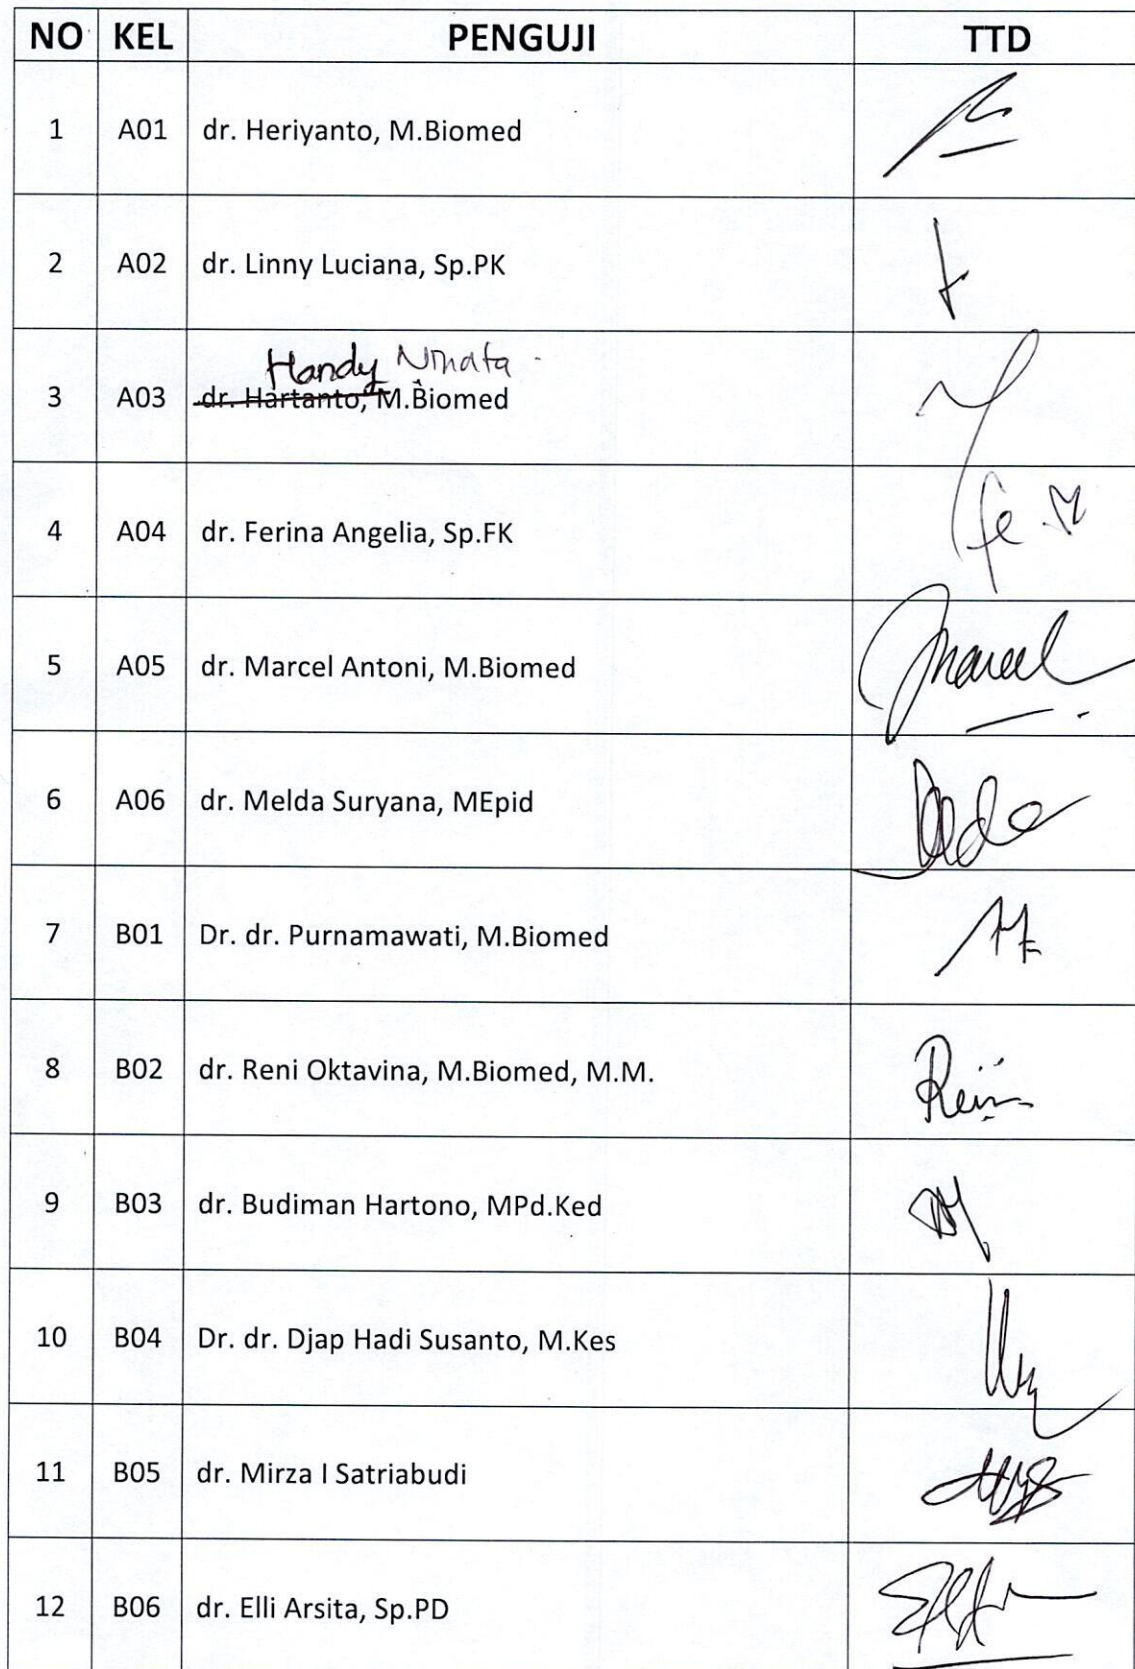 NO KEL PENGUJI TTD
1 A01 dr. Heriyanto, M.Biomed
2 A02 dr. Linny Luciana, Sp.PK
Handy
3 A03 dr. Hartanto, M.Biomed
4 A04 dr. Ferina Angelia, Sp.FK fe
5 A05 dr. Marcel Antoni, M.Biomed Marcel
6 A06 dr. Melda Suryana, MEpid
7 B01 Dr. dr. Purnamawati, M.Biomed
8 B02 dr. Reni Oktavina, M.Biomed, M.M.
9 B03 dr. Budiman Hartono, MPd.Ked
10 B04 Dr. dr. Djap Hadi Susanto, M.Kes
11 B05 dr. Mirza I Satriabudi
12 B06 dr. Elli Arsita, Sp.PD